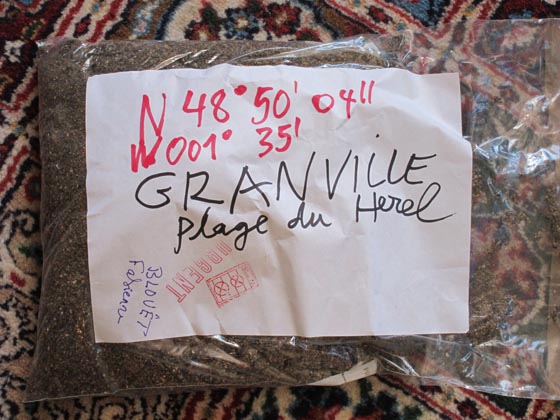 N 48° 50' 04"
W 001° 35'
GRANVILLE
plage du Herel
URGENT
BLOUËT
Fabienne